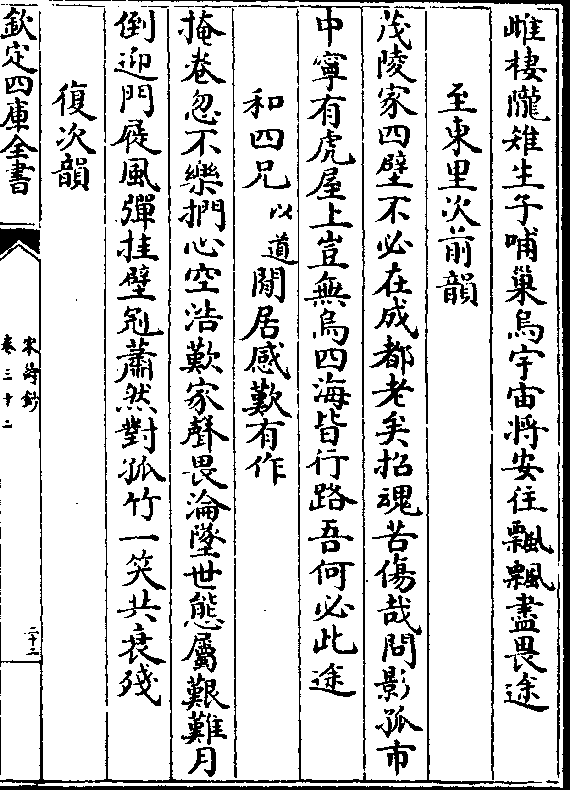 雌棲隴雉生子哺巢烏宇宙將安往飄飄盡畏途
至東里次前韻
茂陵家四壁不必在成都老矣招魂苦傷哉問影孤市
中寧有虎屋上豈無烏四海皆行路吾何必此途
和四兄以道閒居感歎有作
掩卷忽不樂捫心空浩歎家聲畏淪墜世態屬艱難月
倒迎門屐風彈挂壁冠蕭然對孤竹一笑共衰殘
復次韻
欽定四庫全書
宋詩鈔
卷三十二
二十二